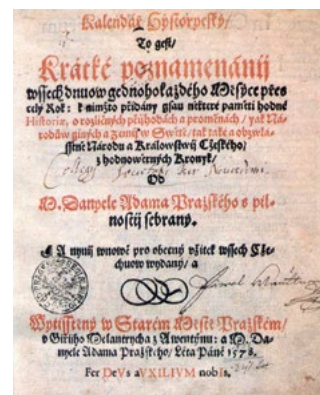 Kalendář Hystorycský/
To gest/
Krátké poznamenánij
wssech dnuow gednohokaždého Měsýce přes
celý Rok: k nimžto přidány gsau některé paměti hodné
Historiæ, o rozličných přijhodách a proměnách/ yak Ná-
roduow giných a Zemij w Swětě/ tak také a obzwlá-
sstně Národu a Králowstwij Cžeského/
z hodnowěrných Kronyk/
Od
M. Danyele Adama Pražského s pil-
nostij sebraný.
A nynij wnowě pro obecný vžitek wssech Cže-
chuow wydaný/ a
Wytisstěný w Starém Městě Pražském/
v Giřijho Melantrycha z Awentýnu: a M. Da-
nyele Adama Pražského/ Léta Páně 1578.
Fer DeVs aVXILIVM nobIs.